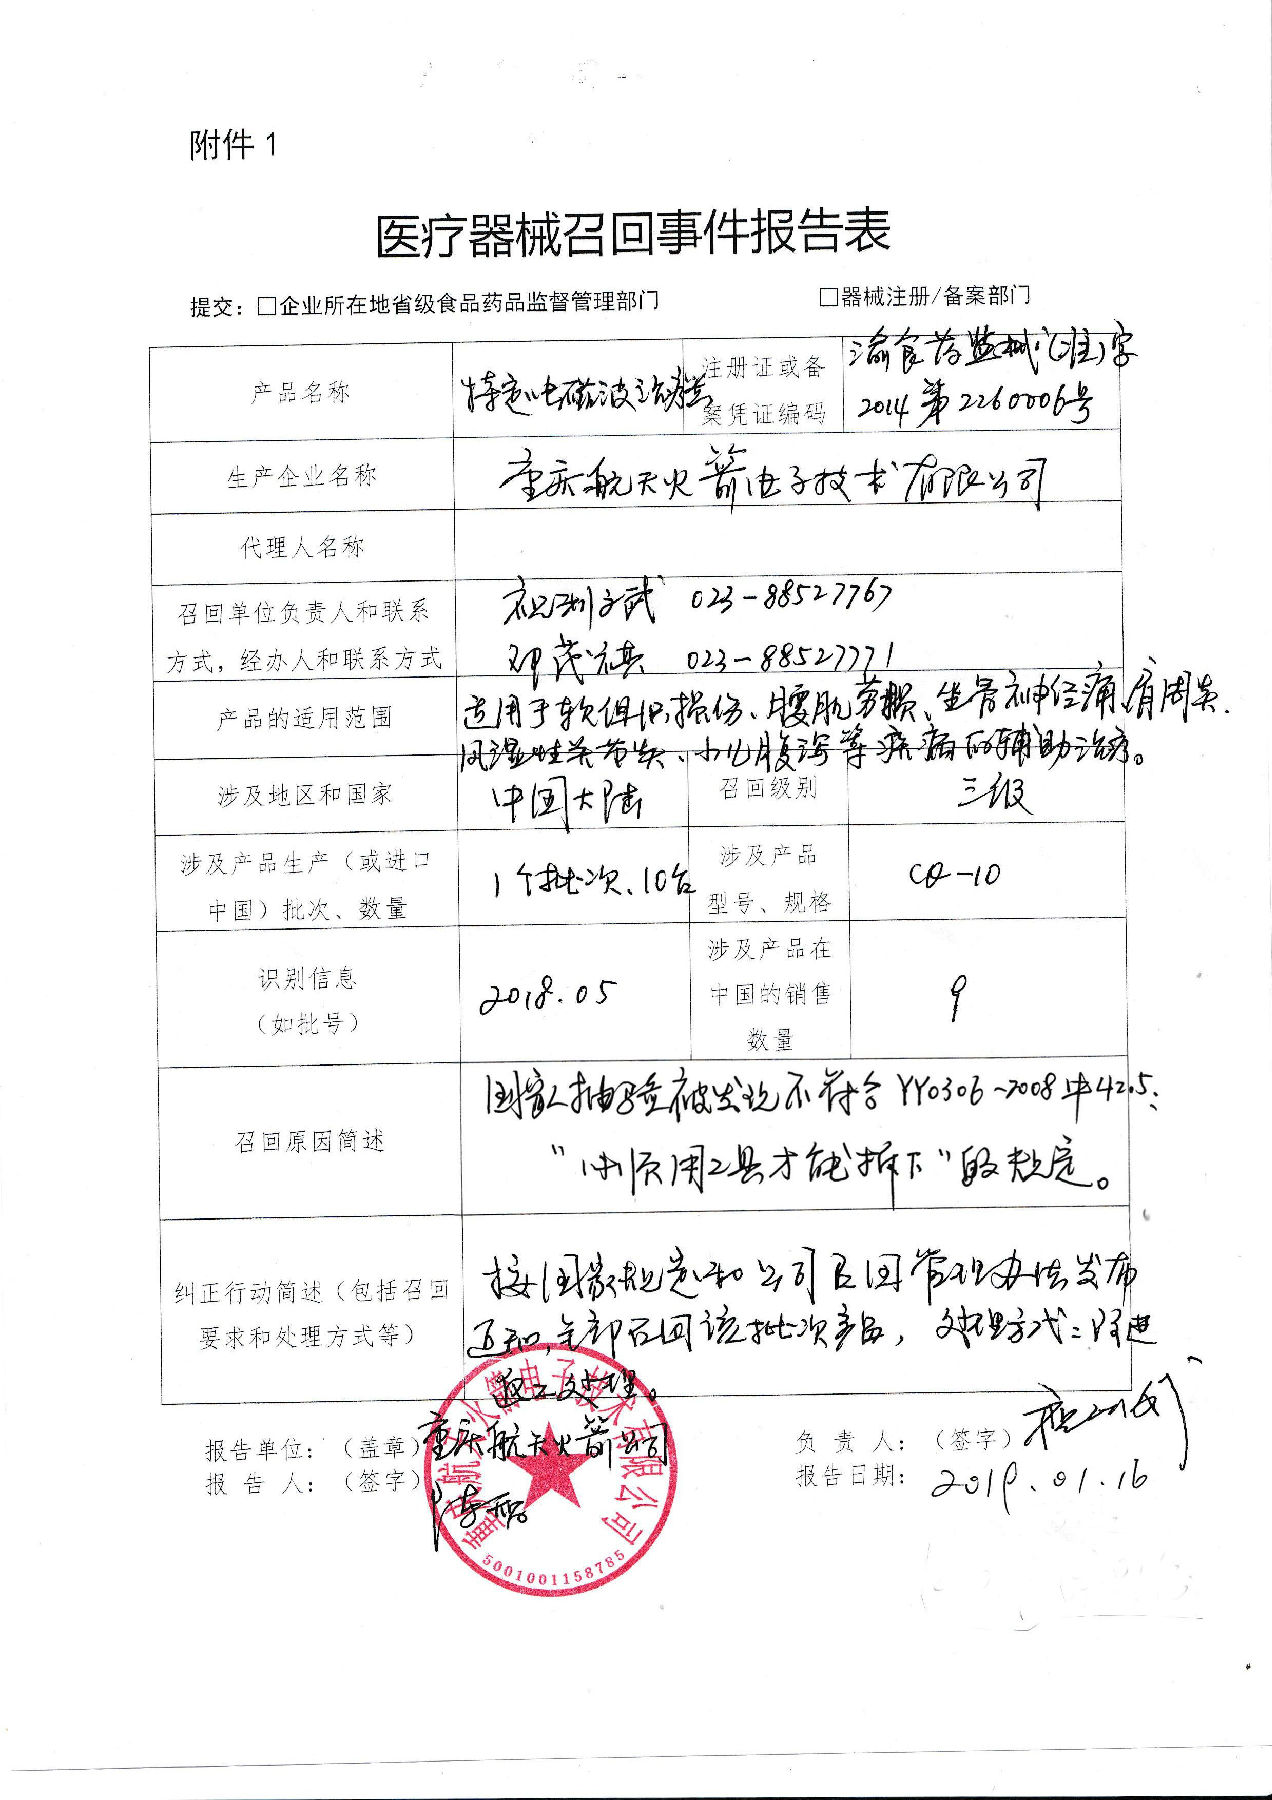 附件 1
医疗器械召回事件报告表
提交：□企业所在地省级食品药品监督管理部门 □器械注册/备案部门
产品名称 特定电磁波治疗器 注册证或备案凭证编码 渝食药监械(准)字
2014第2260006号
生产企业名称 重庆航天火箭电子技术有限公司
代理人名称
召回单位负责人和联系 023-88527767
方式，经办人和联系方式 邓茂祺 023-88527771
产品的适用范围 适用于软组织损伤、腰肌劳损、坐骨神经痛、肩周炎、
风湿性关节炎、小儿腹泻等疾病的辅助治疗。
涉及地区和国家 中国大陆 召回级别 三级
涉及产品生产（或进口
中国）批次、数量 1个批次、10台 涉及产品
型号、规格 CQ-10
识别信息
（如批号） 2018.05 涉及产品在
中国的销售
数量 9
召回原因简述 国家抽验被发现不符合YY0306-2008中42.5：
“必须用工具才能拆下”的规定。
纠正行动简述（包括召回
要求和处理方式等） 按国家规定和公司召回管理办法发布
通知，全部召回该批次产品，处理方式：改进
返工处理。
报告单位：（盖章） 重庆航天火箭公司 负 责 人：（签字）
报 告 人：（签字） 报告日期： 2019.01.16
重庆航天火箭电子技术有限公司
5001001158785